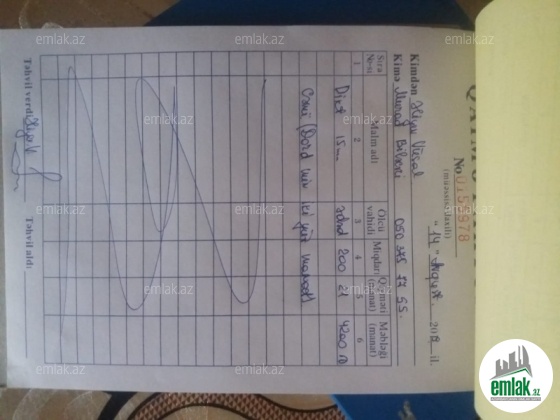 QAİMƏ
No 0154978
(müəssisə daxili)
"14" Avqust 2018 il.
Kimdən Əliyev Vüsal
Kimə Murad 050 375 77 55.
Sıra №-si
Malın adı
Ölçü vahidi
Miqdarı
Qiyməti (manat)
Məbləği (manat)
1 2 3 4 5 6
Dikt 15 m ədəd 200 21 4200 m
Cəmi (Dörd min iki yüz manat)
Təhvil verdi:
Təhvil aldı:
emlak.az
emlak.az